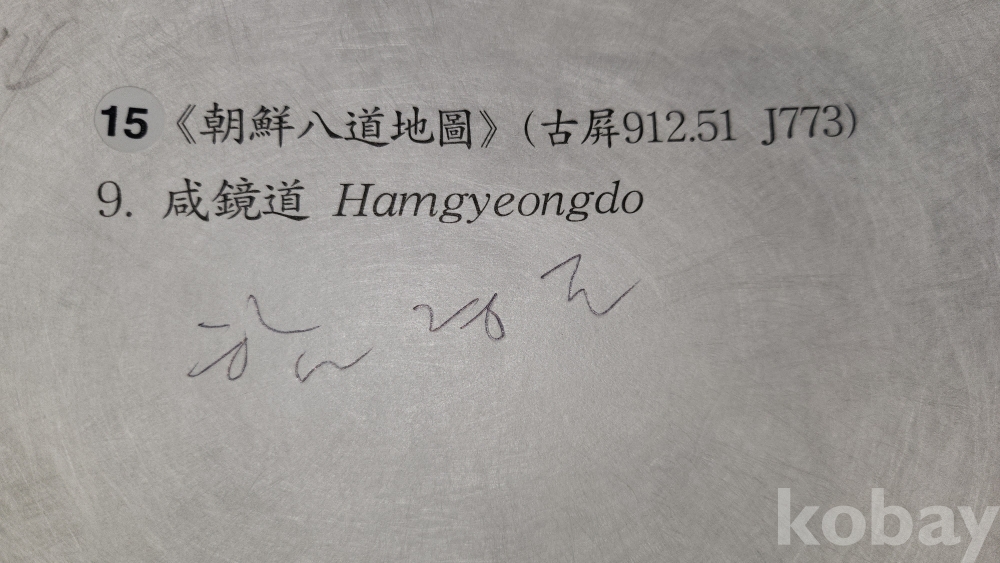 15 《朝鮮八道地圖》 (古屛912.51 J773)
9. 咸鏡道 Hamgyeongdo
함경도
kobay